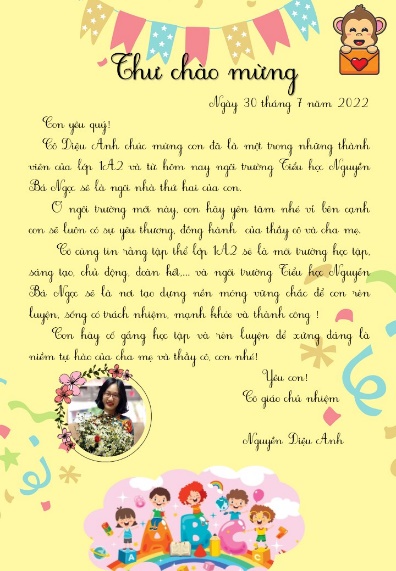 Thư chào mừng
Ngày 30 tháng 7 năm 2022
Con yêu quý!
Cô Diệu Anh chúc mừng con đã là một trong những thành
viên của lớp 1A2 và từ hôm nay ngôi trường Tiểu học Nguyễn
Bá Ngọc sẽ là ngôi nhà thứ hai của con.
Ở ngôi trường mới này, con hãy yên tâm nhé vì bên cạnh
con sẽ luôn có sự yêu thương, đồng hành của thầy cô và cha mẹ.
Cô cũng tin rằng tập thể lớp 1A2 sẽ là môi trường học tập,
sáng tạo, chủ động, đoàn kết,... và ngôi trường Tiểu học Nguyễn
Bá Ngọc sẽ là nơi tạo dựng nền móng vững chắc để con rèn
luyện, sống có trách nhiệm, mạnh khỏe và thành công !
Con hãy cố gắng học tập và rèn luyện để xứng đáng là
niềm tự hào của cha mẹ và thầy cô, con nhé!
Yêu con!
Cô giáo chủ nhiệm
Nguyễn Diệu Anh
A B C